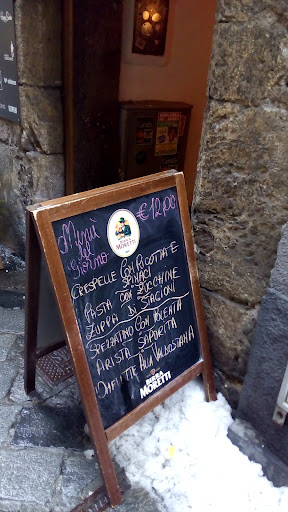 Menù
del
Giorno
€ 12,00
BIRRA
MORETTI
CRESPELLE CON RICOTTA E
SPINACI
PASTA CON ZUCCHINE
ZUPPA DI STAGIONI
SPEZZATINO CON POLENTA
ARISTA SAPORITA
OMELETTE ALLA VALDOSTANA
BIRRA
MORETTI